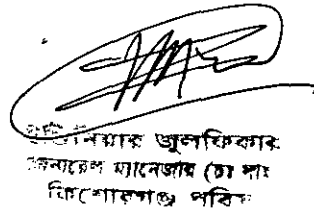 ইঞ্জিনিয়ার জুলফিকার
জেনারেল ম্যানেজার (চঃ দাঃ
কিশোরগঞ্জ পবিস